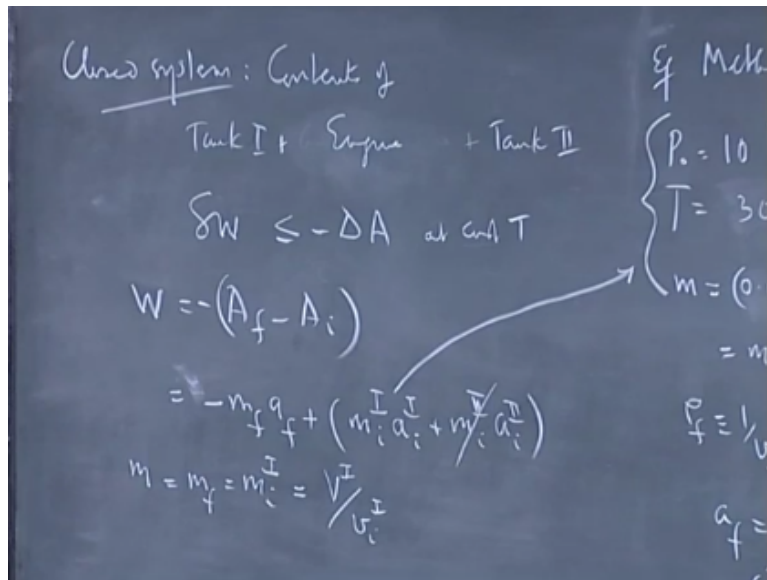 Closed system : Contents of
Tank I + Engine + Tank II
δW ≤ - ΔA at const T
W = -(A_f - A_i)
= -m_f a_f + (m_i^I a_i^I + m_i^II a_i^II)
m = m_f = m_i^I = V^I / v_i^I
Eg Meth
P_0 = 10
T = 30
m = (0.
= m
ρ_f ≡ 1/v
a_f =